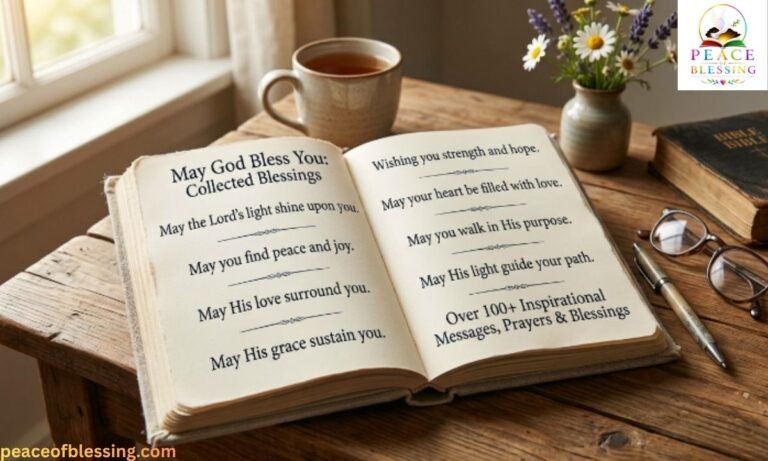 May God Bless You:
Collected Blessings
May the Lord's light shine upon you.
May you find peace and joy.
May His love surround you.
May His grace sustain you.
Wishing you strength and hope.
May your heart be filled with love.
May you walk in His purpose.
May His light guide your path.
Over 100+ Inspirational
Messages, Prayers & Blessings
PEACE
OF
BLESSING
BIBLE
BIBBE
peaceofblessing.com